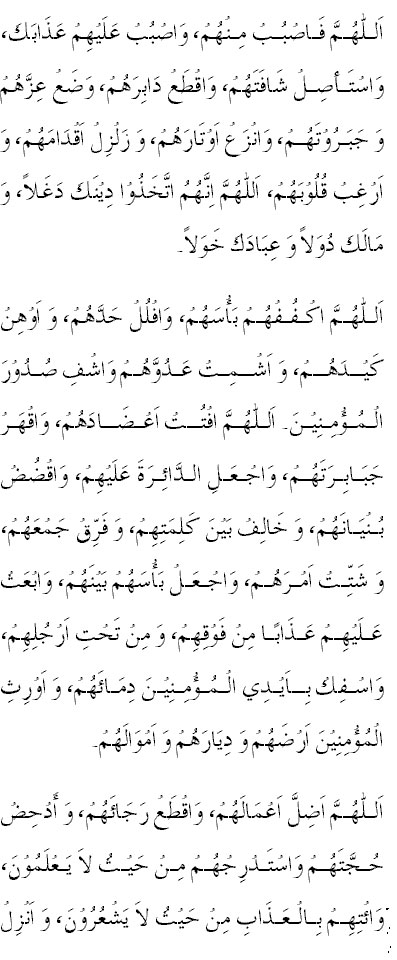 اَللّٰهُمَّ فَاصْبُبْ مِنْهُمْ، وَاصْبُبْ عَلَيْهِمْ عَذَابَكَ،
وَاسْتَأْصِلْ شَافَتَهُمْ، وَاقْطَعْ دَابِرَهُمْ، وَضَعْ عِزَّهُمْ
وَ جَبَرُوْتَهُمْ، وَانْزَعْ اَوْتَارَهُمْ، وَ زَلْزِلْ اَقْدَامَهُمْ، وَ
اَرْغِبْ قُلُوْبَهُمْ، اَللّٰهُمَّ اِنَّهُمُ اتَّخَذُوْا دِيْنَكَ دَغَلاً، وَ
مَالَكَ دُوَلاً وَ عِبَادَكَ خَوَلاً۔
اَللّٰهُمَّ اكْفُفْهُمْ بَأْسَهُمْ، وَافْلُلْ حَدَّهُمْ، وَ اَوْهِنْ
كَيْدَهُمْ، وَ اَشْمِتْ عَدُوَّهُمْ وَاشْفِ صُدُوْرَ
الْمُؤْمِنِيْنَ۔ اَللّٰهُمَّ افْتُتْ اَعْضَادَهُمْ، وَاقْهَرْ
جَبَابِرَتَهُمْ، وَاجْعَلِ الدَّائِرَةَ عَلَيْهِمْ، وَاقْضُضْ
بُنْيَانَهُمْ، وَ خَالِفْ بَيْنَ كَلِمَتِهِمْ، وَ فَرِّقْ جَمْعَهُمْ،
وَ شَتِّتْ اَمْرَهُمْ، وَاجْعَلْ بَأْسَهُمْ بَيْنَهُمْ، وَابْعَثْ
عَلَيْهِمْ عَذَابًا مِنْ فَوْقِهِمْ، وَ مِنْ تَحْتِ اَرْجُلِهِمْ،
وَاسْفِكْ بِاَيْدِي الْمُؤْمِنِيْنَ دِمَائَهُمْ، وَ اَوْرِثِ
الْمُؤْمِنِيْنَ اَرْضَهُمْ وَ دِيَارَهُمْ وَ اَمْوَالَهُمْ۔
اَللّٰهُمَّ اَضِلَّ اَعْمَالَهُمْ، وَاقْطَعْ رَجَائَهُمْ، وَ أَدْحِضْ
حُجَّتَهُمْ وَاسْتَدْرِجْهُمْ مِنْ حَيْثُ لاَ يَعْلَمُوْنَ،
وَائْتِهِمْ بِالْعَذَابِ مِنْ حَيْثُ لاَ يَشْعُرُوْنَ، وَ اَنْزِلْ